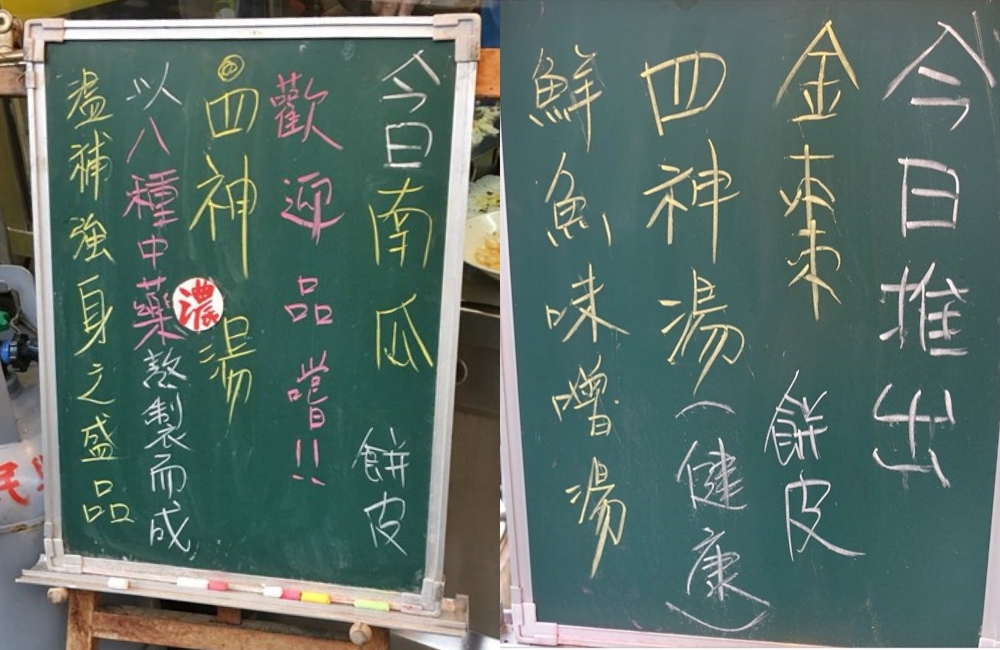 今日南瓜餅皮
歡迎品嚐!!
◎四神濃湯
以八種中藥熬製而成
温補強身之盛品
今日推出
金棗餅皮
四神湯(健康)
鮮魚味噌湯